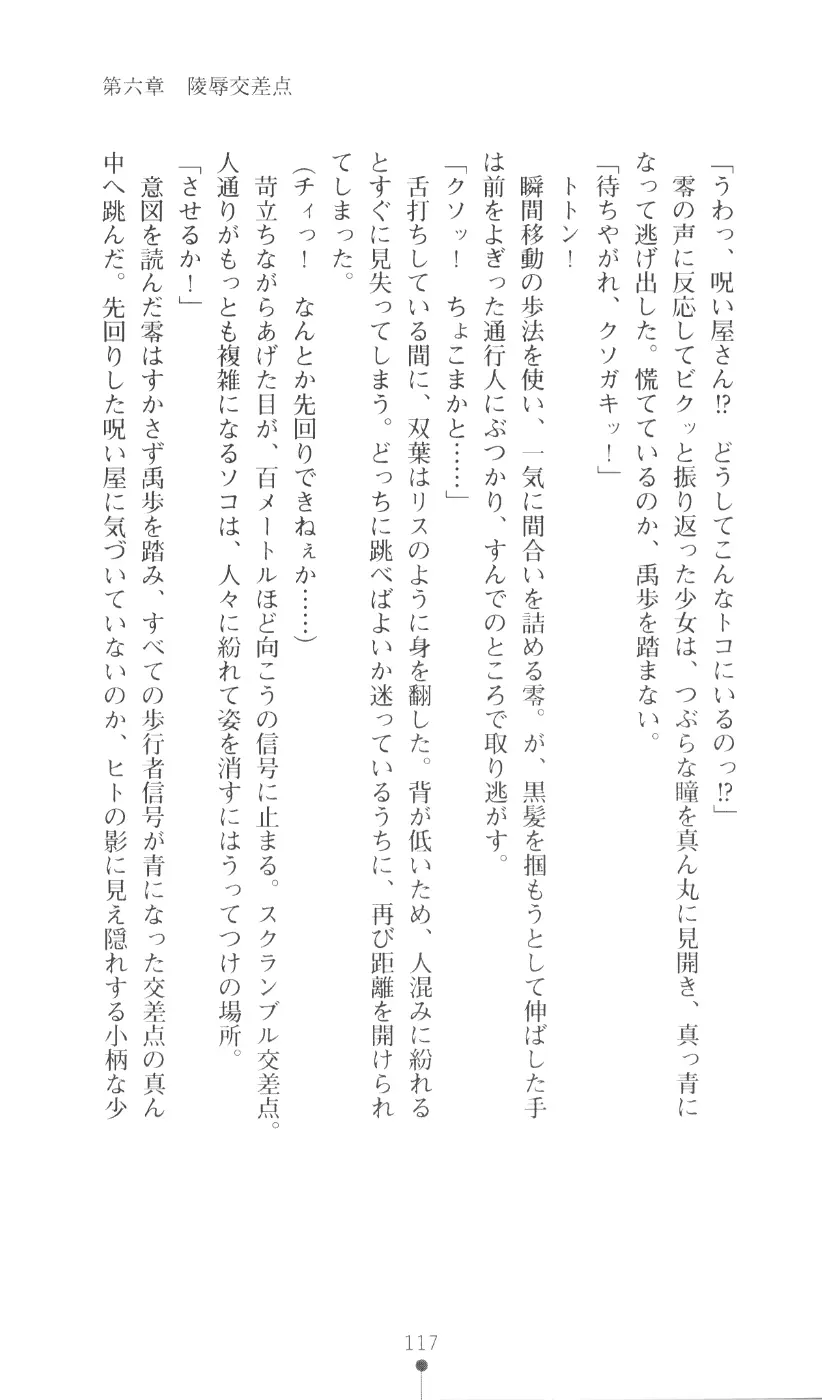 第六章　陵辱交差点
「うわっ、呪い屋さん!?　どうしてこんなトコにいるのっ!?」
　零の声に反応してビクッと振り返った少女は、つぶらな瞳を真ん丸に見開き、真っ青に
なって逃げ出した。慌てているのか、禹歩を踏まない。
「待ちやがれ、クソガキッ！」
　トトン！
　瞬間移動の歩法を使い、一気に間合いを詰める零。が、黒髪を掴もうとして伸ばした手
は前をよぎった通行人にぶつかり、すんでのところで取り逃がす。
「クソッ！　ちょこまかと……」
　舌打ちしている間に、双葉はリスのように身を翻した。背が低いため、人混みに紛れる
とすぐに見失ってしまう。どっちに跳べばよいか迷っているうちに、再び距離を開けられ
てしまった。
（チィっ！　なんとか先回りできねぇか……）
　苛立ちながらあげた目が、百メートルほど向こうの信号に止まる。スクランブル交差点。
人通りがもっとも複雑になるソコは、人々に紛れて姿を消すにはうってつけの場所。
「させるか！」
　意図を読んだ零はすかさず禹歩を踏み、すべての歩行者信号が青になった交差点の真ん
中へ跳んだ。先回りした呪い屋に気づいていないのか、ヒトの影に見え隠れする小柄な少
117